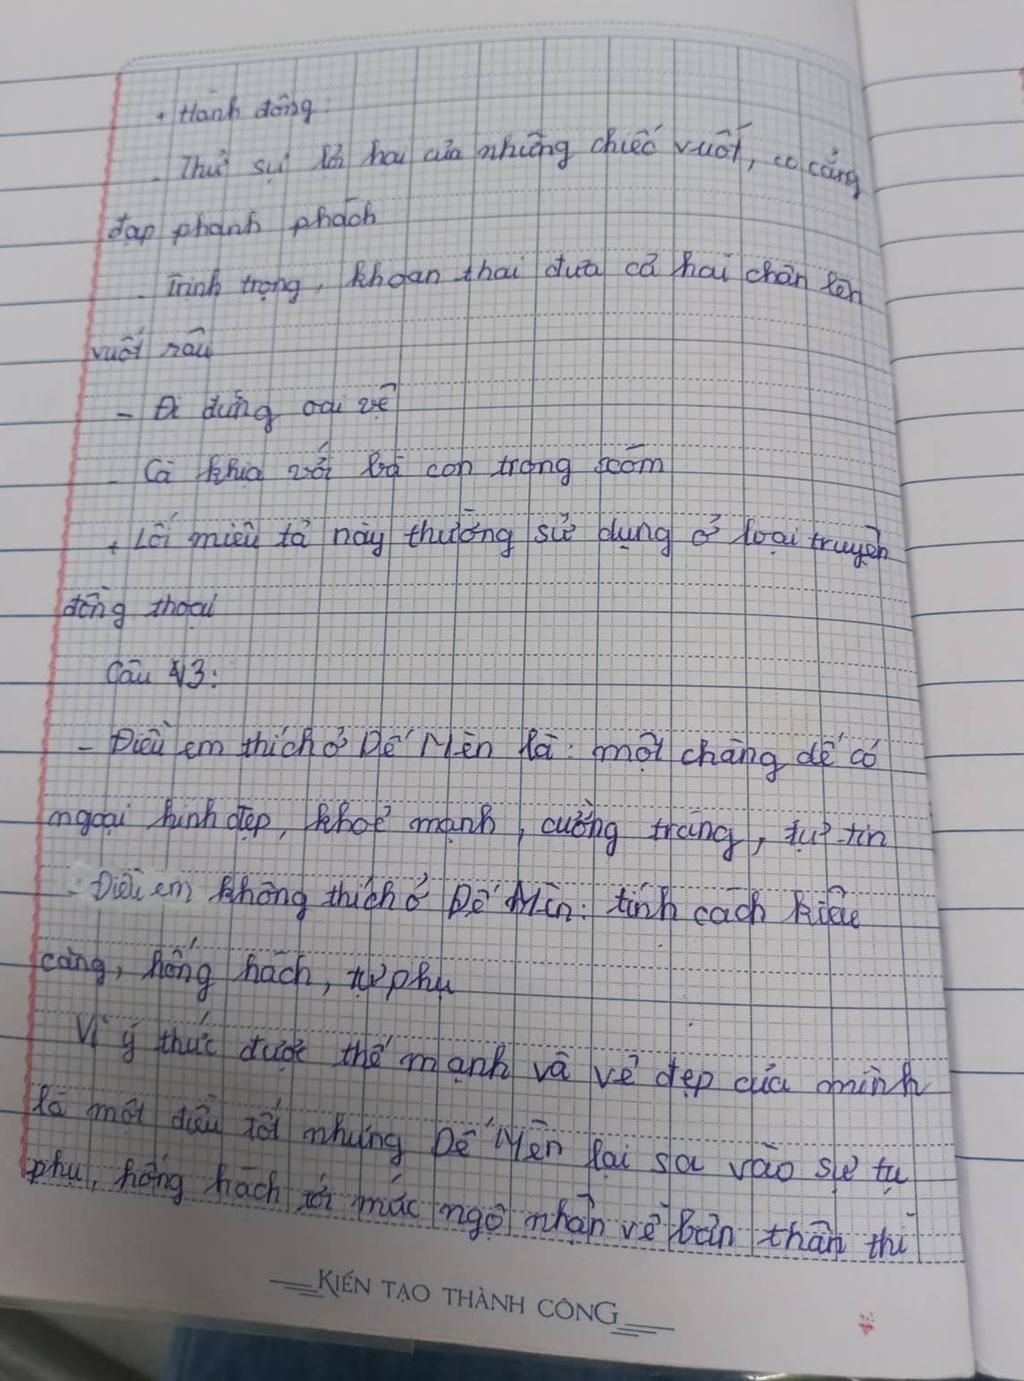 + Hành động:
- Thử sự lợi hại của những chiếc vuốt, co cẳng
đạp phanh phách
- Trịnh trọng, khoan thai đưa cả hai chân lên
vuốt râu
- Đi đứng oai vệ
- Cà khịa với bà con trong xóm
+ Lối miêu tả này thường sử dụng ở loại truyện
đồng thoại
Câu 3:
- Điều em thích ở Dế Mèn là: một chàng dế có
ngoại hình đẹp, khoẻ mạnh, cường tráng, tự tin
- Điều em không thích ở Dế Mèn: tính cách kiêu
căng, hống hách, tự phụ
Vì ý thức được thế mạnh và vẻ đẹp của mình
là một điều tốt nhưng Dế Mèn lại sa vào sự tự
phụ, hống hách tới mức ngộ nhận về bản thân thì
KIẾN TẠO THÀNH CÔNG